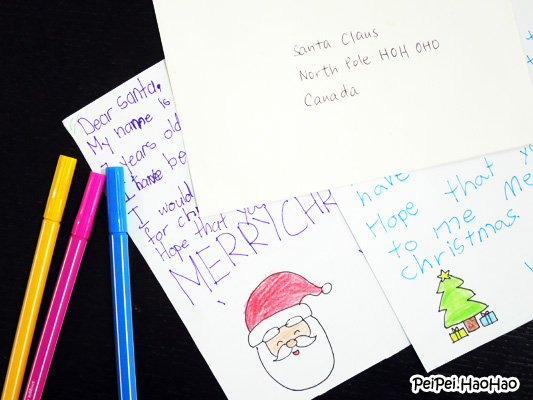 Santa Claus
North Pole H0H 0H0
Canada
Dear Santa,
My name is
years old
I have be
I would
for ch
Hope that you
MERRY CHR
have
Hope that yo
to me Me
christmas.
PeiPei.HaoHao